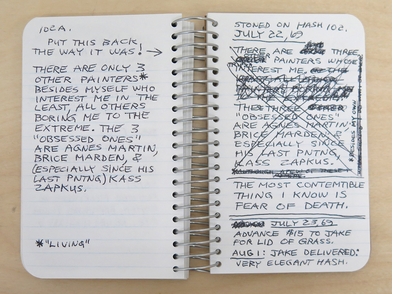 102A.
PUT THIS BACK
THE WAY IT WAS!
THERE ARE ONLY 3
OTHER PAINTERS*
BESIDES MYSELF WHO
INTEREST ME IN THE
LEAST, ALL OTHERS
BORING ME TO THE
EXTREME. THE 3
"OBSESSED ONES"
ARE AGNES MARTIN,
BRICE MARDEN, &
(ESPECIALLY SINCE HIS
LAST PNTNG) KASS
ZAPKUS.
*"LIVING"
STONED ON HASH 102.
JULY 22, 69
THERE ARE THREE
PAINTERS WHOSE
INTEREST ME
THE THREE
"OBSESSED ONES"
ARE AGNES MARTIN,
BRICE MARDEN, &
ESPECIALLY SINCE
HIS LAST PNTNG,
KASS ZAPKUS.
BESIDES MY OWN
THE MOST CONTEMTIBLE
THING I KNOW IS
FEAR OF DEATH.
JULY 23, 69
ADVANCE $15 TO JAKE
FOR LID OF GRASS.
AUG 1: JAKE DELIVERED:
VERY ELEGANT HASH.